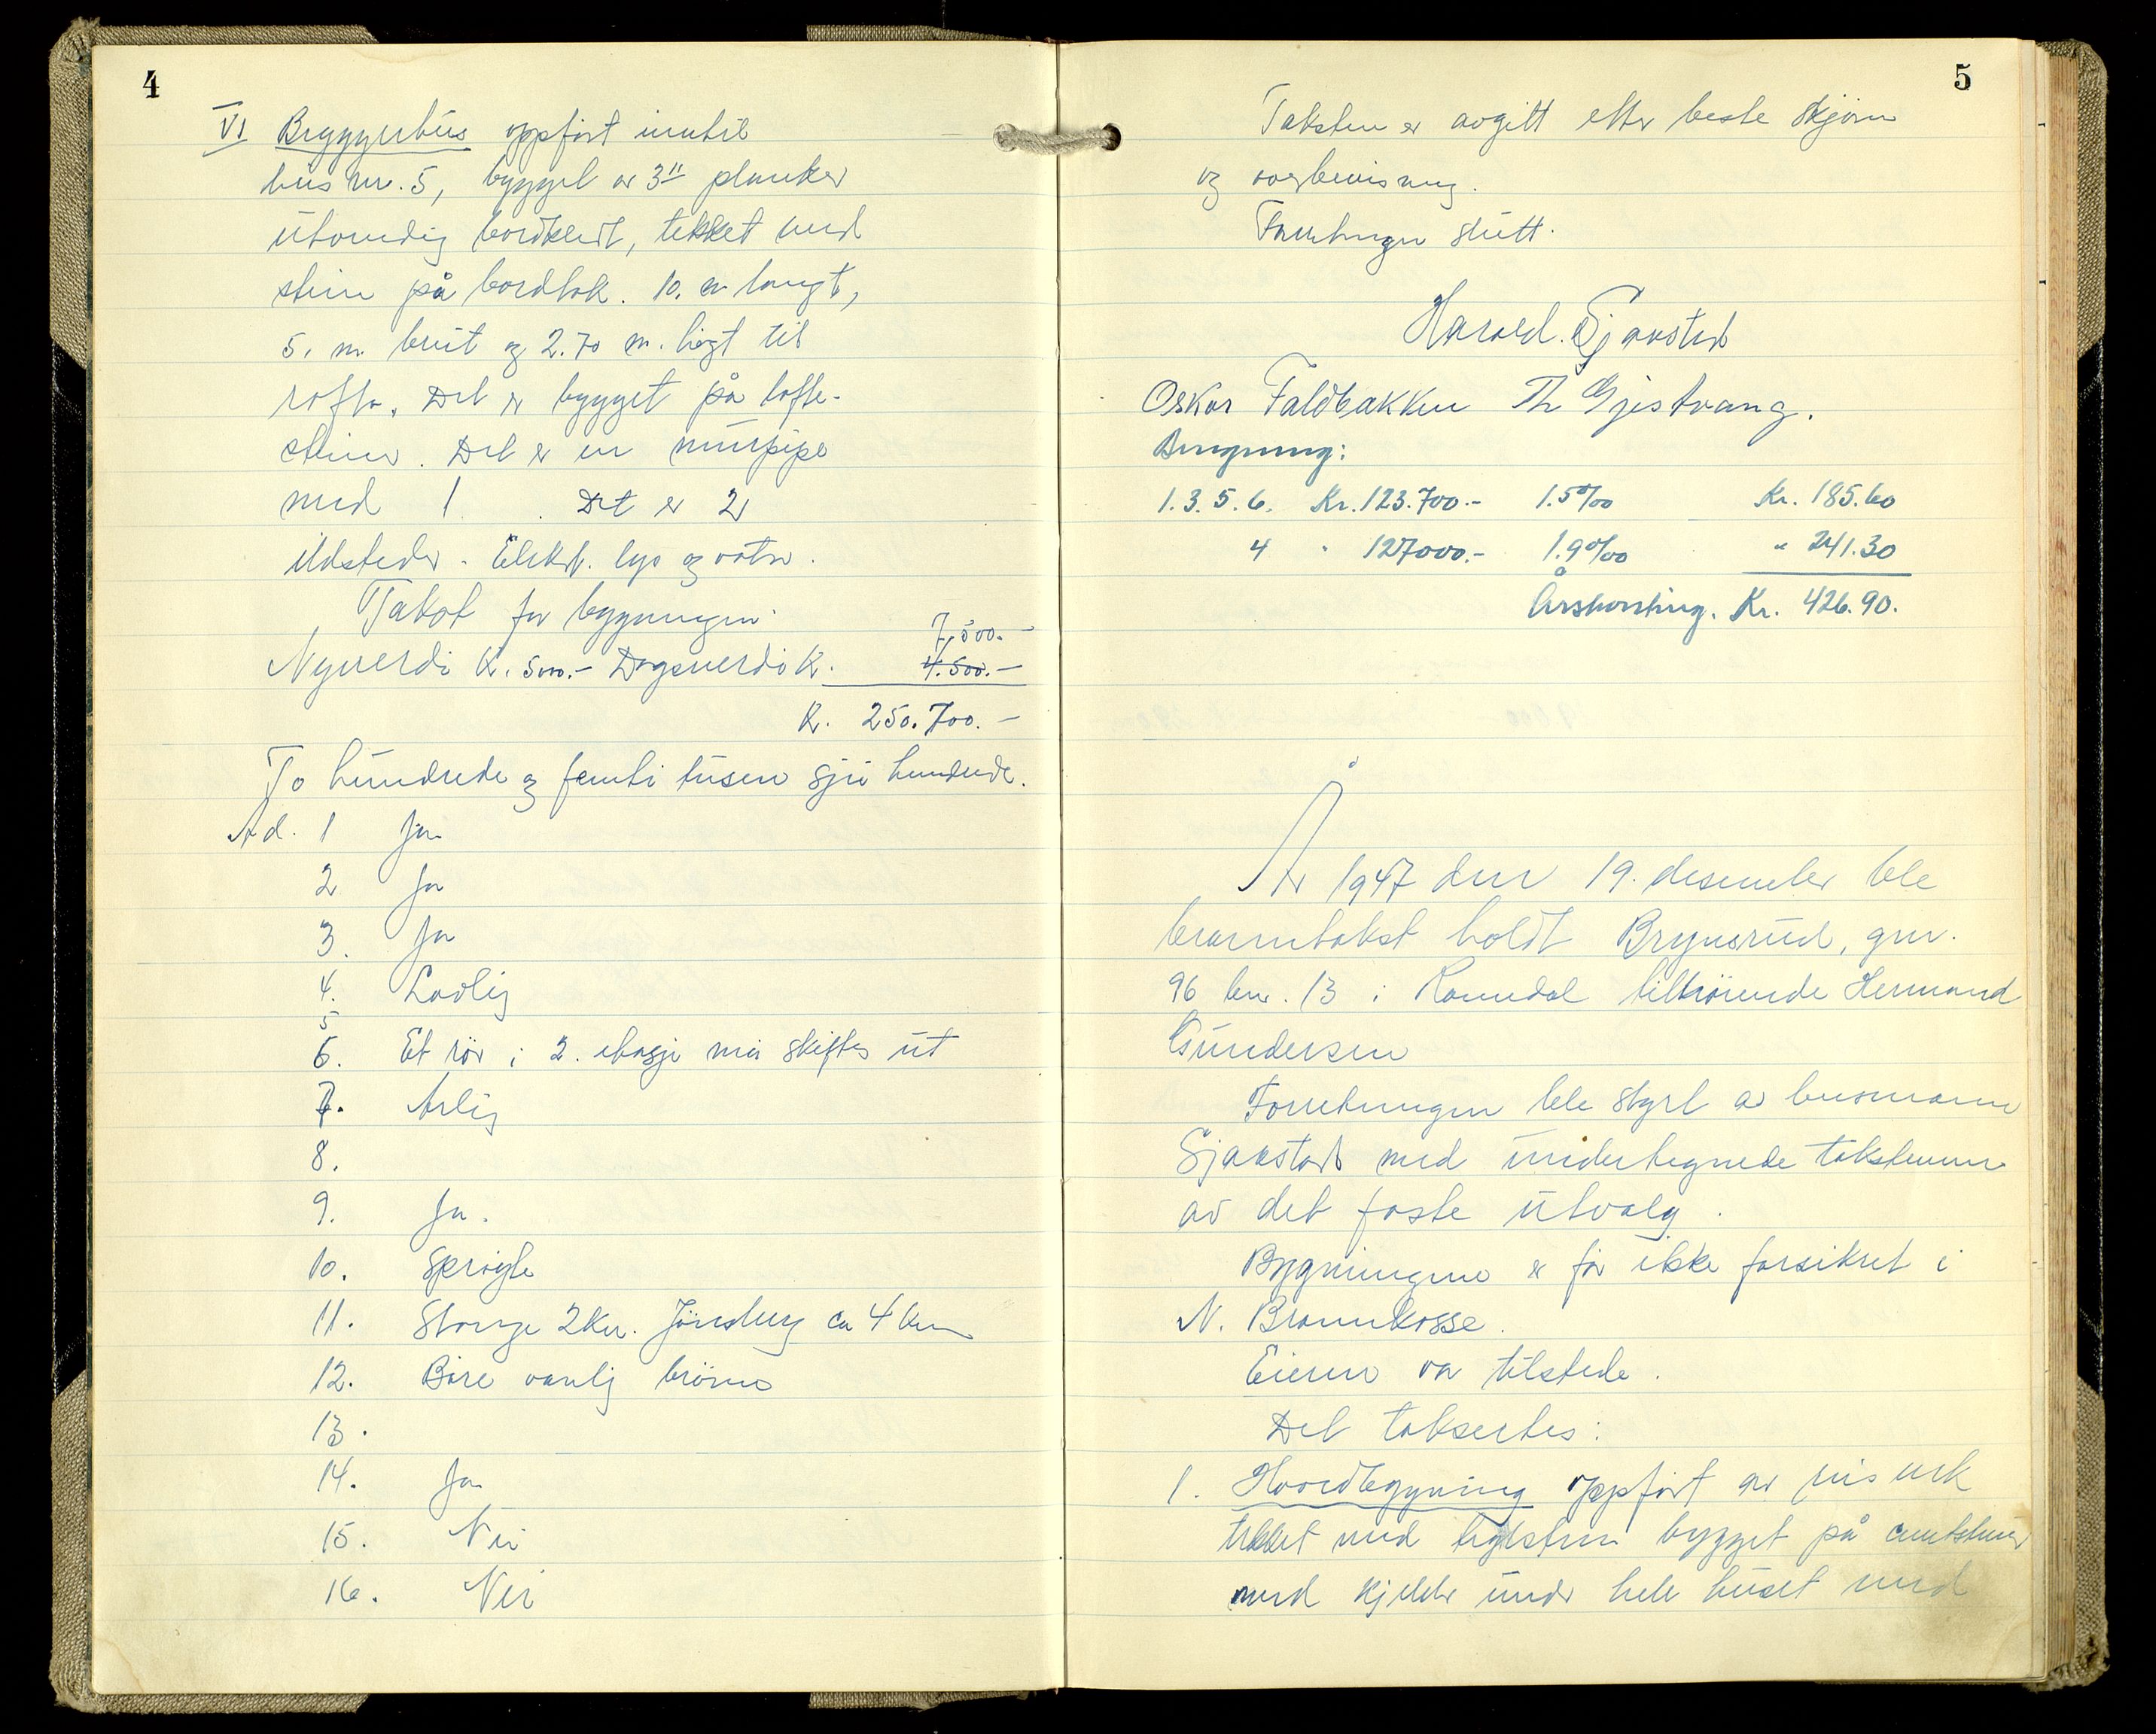 4
VI Bryggerhus oppført inntil
hus nr. 5, bygget av 3" planker
utvendig bordkledt, tekket med
stein på bordtak. 10. m langt,
5. m. breit og 2.70 m. høgt til
rafta. Det er bygget på løfte-
steiner. Det er en murpipe
med 1 . Det er 2
ildsteder. Elekt. lys og vatn.
Takst for bygningen:
7,500.-
Nyverdi K. 5000.- Dagsverdi K. 4.500.-
K. 250.700.-
To hundrede og femti tusen sju hundrede.
Ad. 1 Ja
2 Ja
3. Ja
4. Lovlig
5
6. Et rør i 2. etasje må skiftes ut
7. Årlig
8.
9. Ja.
10. Sprøyte
11. Stange 2 km. Jønsberg ca 4 km
12. Bare vanlig brønn
13.
14. Ja
15. Nei
16. Nei
5
Taksten er avgitt etter beste skjønn
og overbevisning.
Forretningen slutt.
Harald Sjaastad
Oskar Faldbakken Th Gjestvang.
Beregning:
1. 3. 5. 6. Kr. 123.700.- 1.5‰ Kr. 185.60
4 " 127000.- 1.9‰ " 241.30
Årskonting. Kr. 426.90.
År 1947 den 19. desember ble
branntakst holdt Brynsrud, gnr.
96 bnr. 13 i Romedal tilhørende Hermand
Gundersen
Forretningen ble styrt av lensmann
Sjaastad med undertegnede takstmenn
av det faste utvalg.
Bygningene er før ikke forsikret i
N. Brannkasse.
Eieren var tilstede.
Det taksertes:
1. Hovedbygning oppført av reisverk
tekket med teglstein bygget på
med kjeller under hele huset med